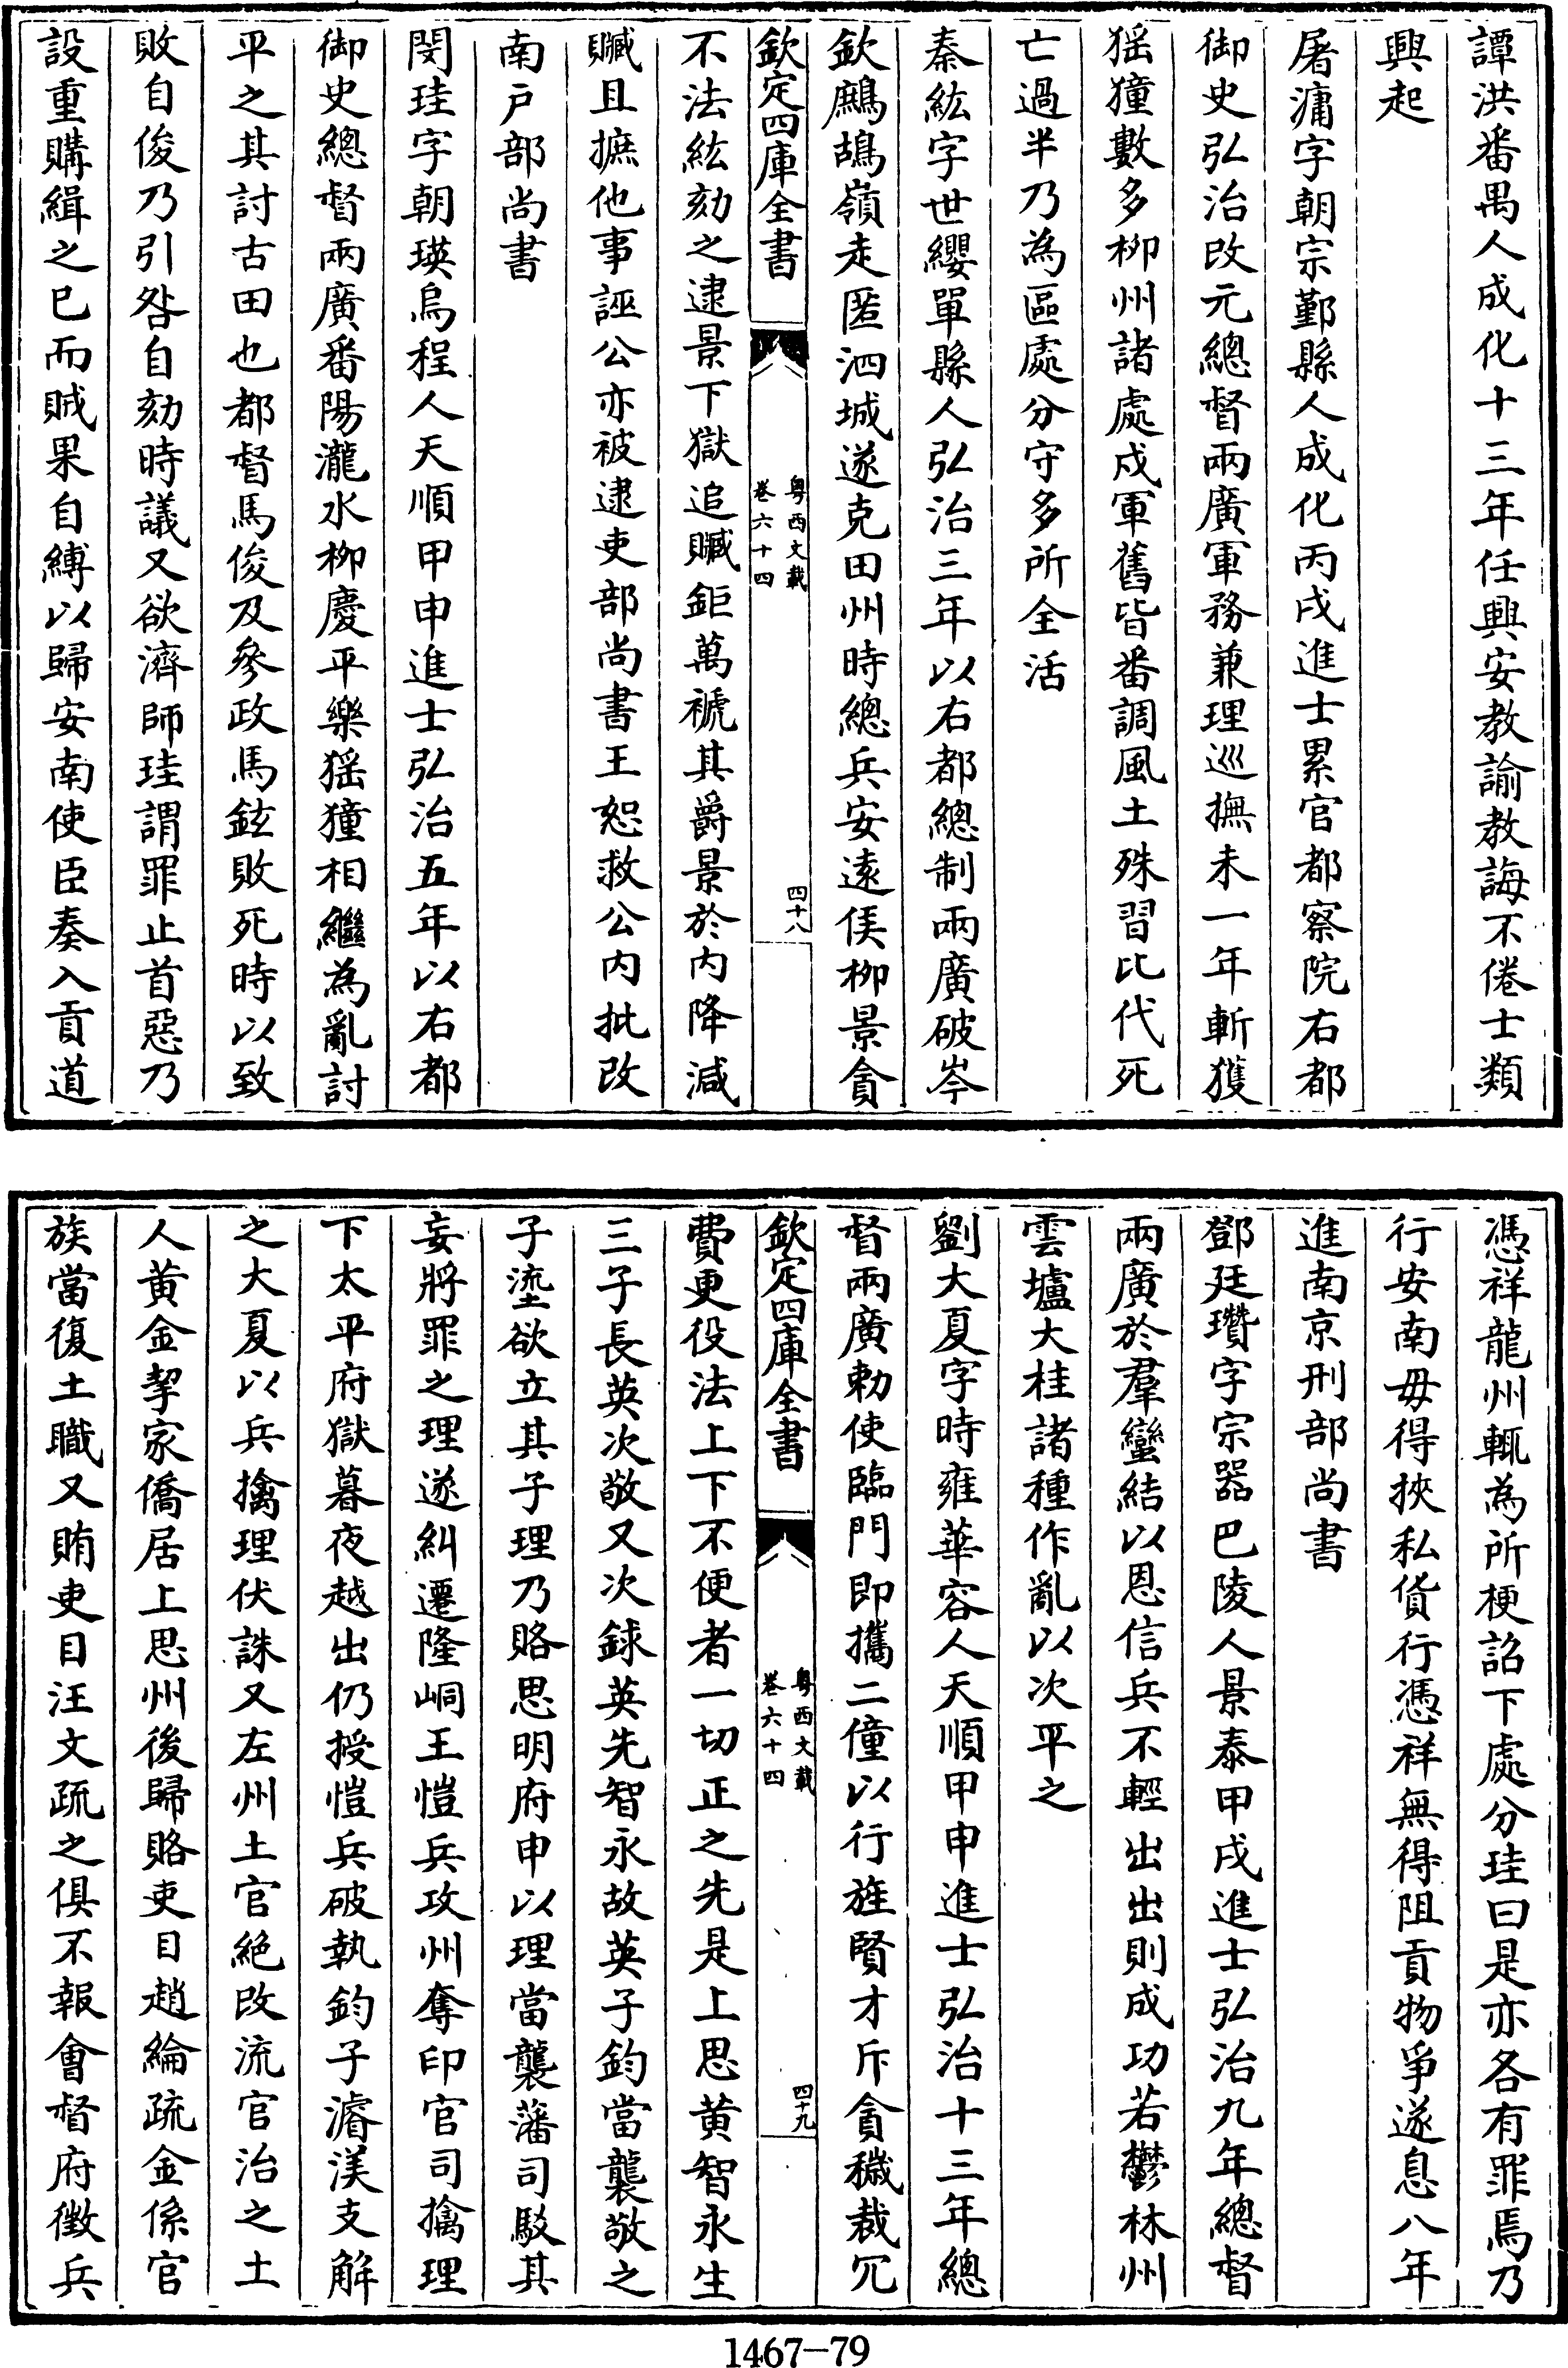 譚洪番禺人成化十三年任興安教諭教誨不倦士類
興起
屠滽字朝宗鄞縣人成化丙戌進士累官都察院右都
御史弘治改元總督兩廣軍務兼理巡撫未一年斬獲
猺獞數多柳州諸處戍軍舊皆番調風土殊習比代死
亡過半乃為區處分守多所全活
秦紘字世纓單縣人弘治三年以右都總制兩廣破岑
欽鷓鴣嶺走匿泗城遂克田州時總兵安遠侯柳景貪
欽定四庫全書
粵西文載
卷六十四
四十八
不法紘劾之逮景下獄追贓鉅萬褫其爵景於內降減
贓且摭他事誣公亦被逮吏部尚書王恕救公內批改
南戶部尚書
閔珪字朝瑛烏程人天順甲申進士弘治五年以右都
御史總督兩廣番陽瀧水柳慶平樂猺獞相繼為亂討
平之其討古田也都督馬俊及參政馬鉉敗死時以致
敗自俊乃引咎自劾時議又欲濟師珪謂罪止首惡乃
設重購緝之已而賊果自縛以歸安南使臣奏入貢道
憑祥龍州輒為所梗詔下處分珪曰是亦各有罪焉乃
行安南毋得挾私貨行憑祥無得阻貢物爭遂息八年
進南京刑部尚書
鄧廷瓚字宗器巴陵人景泰甲戌進士弘治九年總督
兩廣於羣蠻結以恩信兵不輕出出則成功若鬱林州
雲壚大桂諸種作亂以次平之
劉大夏字時雍華容人天順甲申進士弘治十三年總
督兩廣勅使臨門即攜二僮以行旌賢才斥貪穢裁冗
欽定四庫全書
粵西文載
卷六十四
四十九
費更役法上下不便者一切正之先是上思黃智永生
三子長英次敬又次銶英先智永故英子鈞當襲敬之
子塗欲立其子理乃賂思明府申以理當襲藩司駁其
妄將罪之理遂糾遷隆峒王愷兵攻州奪印官司擒理
下太平府獄暮夜越出仍授愷兵破執鈞子濬渼支解
之大夏以兵擒理伏誅又左州土官絕改流官治之土
人黃金挈家僑居上思州後歸賂吏目趙綸疏金係官
族當復土職又賄吏目汪文疏之俱不報會督府徵兵
1467—79